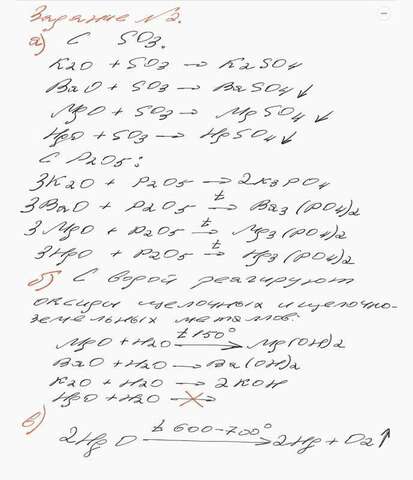 Задание №2.
а) С SO3.
K2O + SO3 → K2SO4
BaO + SO3 → BaSO4↓
MgO + SO3 → MgSO4↓
HgO + SO3 → HgSO4↓
С P2O5:
3K2O + P2O5 → 2K3PO4
3BaO + P2O5 t→ Ba3(PO4)2
3MgO + P2O5 t→ Mg3(PO4)2
3HgO + P2O5 t→ Hg3(PO4)2
б) С водой реагируют
оксиды щелочных и щелочно-
земельных металлов:
MgO + H2O t 150°→ Mg(OH)2
BaO + H2O → Ba(OH)2
K2O + H2O → 2KOH
HgO + H2O ✕→
в) 2HgO t 600-700°→ 2Hg + O2↑